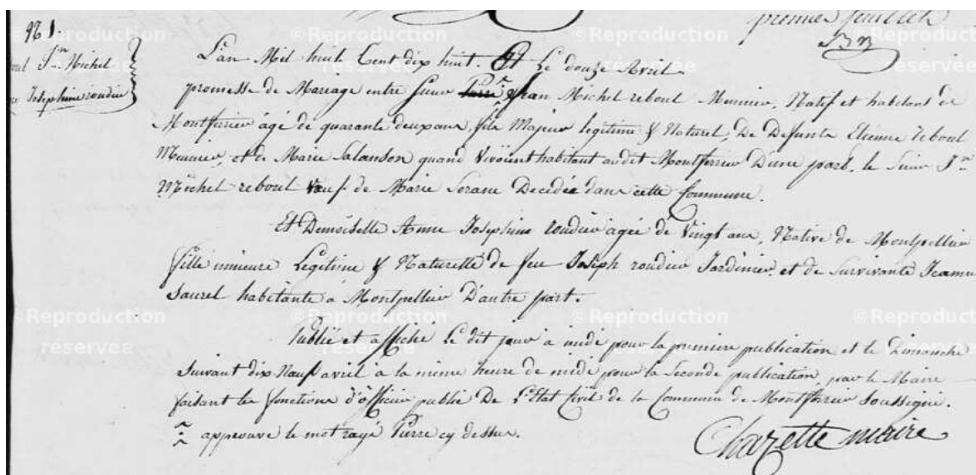 ©Reproduction ©Reproduction ©Reproduction
premier juillet
№ 1.
L'an Mil huit Cent dix huit. Et Le douze Avril
reboul Jn Michel
promesse de Mariage entre Sieur Pierre Jean Michel reboul Meunier, Natif et habitant de
Josephine roudier
Montferrier âgé de quarante deux ans, fils Majeur legitime & Naturel, De Defunts Etienne reboul
Meunier, et de Marie Salanson quand vivoient habitant audit Montferrier D'une part. le Sieur Jn
Michel reboul Veuf de Marie Serane Decedée dans cette Commune.
Et Demoiselle Anne Josephine roudier agée de Vingt ans, Native de Montpellier
fille mineure Legitime & Naturelle de feu Joseph roudier Jardinier, et de Survivante Jeanne
Saurel habitante à Montpellier D'autre part.
©Reproduction ©Reproduction ©Reproduction
réservée réservée réservée
Publié et affiché Le dit jour à midi pour la premiere publication et le Dimanche
Suivant dix Neuf avril à la même heure de midi pour la Seconde publication, par le Maire
faisant les fonctions d'officier public De l'Etat Civil de la Commune de Montferrier Soussigné.
approuvé le mot rayé Pierre cy dessus.
Chazette maire